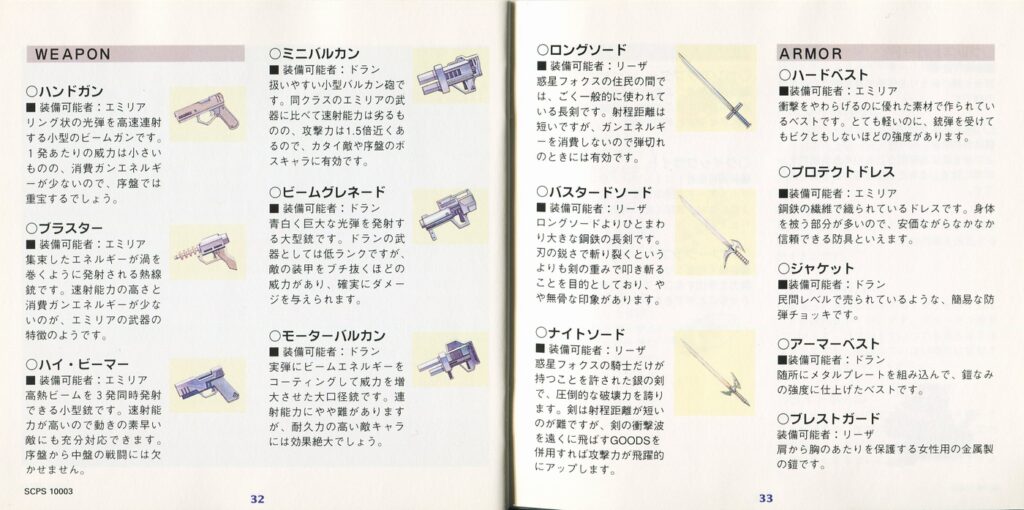 WEAPON
○ハンドガン
■装備可能者：エミリア
リング状の光弾を高速連射
する小型のビームガンです。
１発あたりの威力は小さい
ものの、消費ガンエネルギ
ーが少ないので、序盤では
重宝するでしょう。
○ブラスター
■装備可能者：エミリア
集束したエネルギーが渦を
巻くように発射される熱線
銃です。速射能力の高さと
消費ガンエネルギーが少な
いのが、エミリアの武器の
特徴のようです。
○ハイ・ビーマー
■装備可能者：エミリア
高熱ビームを３発同時発射
できる小型銃です。速射能
力が高いので動きの素早い
敵にも充分対応できます。
序盤から中盤の戦闘には欠
かせません。
○ミニバルカン
■装備可能者：ドラン
扱いやすい小型バルカン砲で
す。同クラスのエミリアの武
器に比べて速射能力は劣るも
のの、攻撃力は1.5倍近くあ
るので、カタイ敵や序盤のボ
スキャラに有効です。
○ビームグレネード
■装備可能者：ドラン
青白く巨大な光弾を発射す
る大型銃です。ドランの武
器としては低ランクですが、
敵の装甲をブチ抜くほどの
威力があり、確実にダメー
ジを与えられます。
○モーターバルカン
■装備可能者：ドラン
実弾にビームエネルギーを
コーティングして威力を増
大させた大口径銃です。連
射能力にやや難があります
が、耐久力の高い敵キャラ
には効果絶大でしょう。
SCPS 10003
32
○ロングソード
■装備可能者：リーザ
惑星フォクスの住民の間で
は、ごく一般的に使われて
いる長剣です。射程距離は
短いですが、ガンエネルギ
ーを消費しないので弾切れ
のときには有効です。
○バスタードソード
■装備可能者：リーザ
ロングソードよりひとまわ
り大きな鋼鉄の長剣です。
刃の鋭さで斬り裂くという
よりも剣の重みで叩き斬る
ことを目的としており、や
や無骨な印象があります。
○ナイトソード
■装備可能者：リーザ
惑星フォクスの騎士だけが
持つことを許された銀の剣
で、圧倒的な破壊力を誇り
ます。剣は射程距離が短い
のが難ですが、剣の衝撃波
を遠くに飛ばすGOODSを
併用すれば攻撃力が飛躍的
にアップします。
ARMOR
○ハードベスト
■装備可能者：エミリア
衝撃をやわらげるのに優れた素材で作られてい
るベストです。とても軽いのに、銃弾を受けて
もビクともしないほどの強度があります。
○プロテクトドレス
■装備可能者：エミリア
鋼鉄の繊維で織られているドレスです。身体
を被う部分が多いので、安価ながらなかなか
信頼できる防具といえます。
○ジャケット
■装備可能者：ドラン
民間レベルで売られているような、簡易な防
弾チョッキです。
○アーマーベスト
■装備可能者：ドラン
随所にメタルプレートを組み込んで、鎧なみ
の強度に仕上げたベストです。
○ブレストガード
装備可能者：リーザ
肩から胸のあたりを保護する女性用の金属製
の鎧です。
33